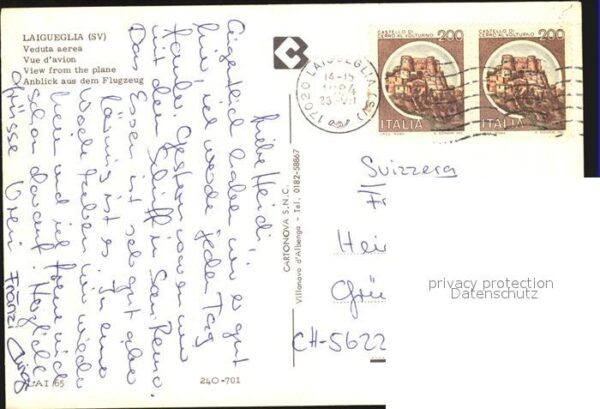 LAIGUEGLIA (SV)
Veduta aerea
Vue d'avion
View from the plane
Anblick aus dem Flugzeug
Liebe Heidi,
Eigentlich haben wir es gut
hier, ich werde jeden Tag
Gestern waren wir
mit dem Schiff in San Remo.
Das Essen ist sehr gut aber
ist es. In einer
Woche haben wir wieder
heim und ich freue mich
schon darauf. Herzliche
Grüsse Vreni Fränzi
CARTONOVA S.N.C.
Villanova d'Albenga - Tel. 0182-58667
17020 LAIGUEGLIA (SV)
14-15
1984
23 VII
CASTELLO DI
CERRO AL VOLTURNO 200
ITALIA
CASTELLO DI
CERRO AL VOLTURNO 200
ITALIA
Svizzera
Fr
Hei
Grü
CH-5622
privacy protection
Datenschutz
LAI 65
240-701